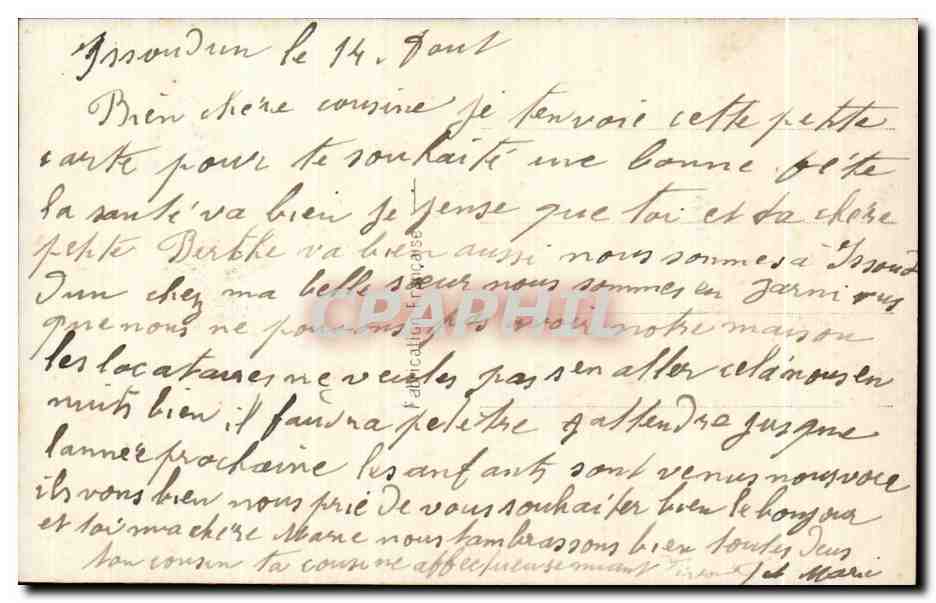 Issoudun le 14. Aout
Bien chère cousine je tenvoie cette petite
carte pour te souhaité une bonne fête
la santé va bien je pense que toi et ta chère
petite Berthe va bien aussi nous sommes à Issoud
dun chez ma belle sœur nous sommes en garni
que nous ne pouvons pas avoir notre maison
les locataires ne veules pas sen aller cela nous en
nuits bien il faudra petêtre attendre jusque
lannee prochaine les anfants sont venus nous voir
ils vons bien nous prie de vous souhaiter bien le bonjour
et toi ma chère Marie nous tambrassons bien toutes deus
ton cousin ta cousine affectueusement et Marie
Fabrication Française
CPAPHIL